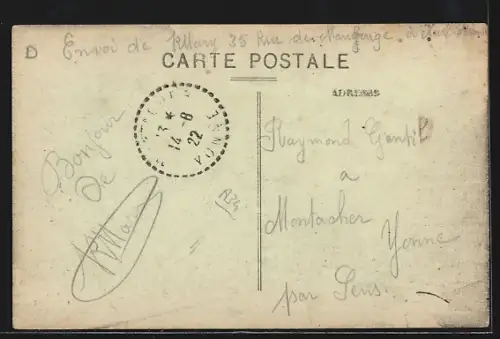 D Envoi de KMary 35 Rue de Maubeuge
CARTE POSTALE
ADRESSE
13 *
14 - 8
22
YONNE
Bonjour
De
KMary
R34
Raymond Gentil
a
Montacher
Yonne
par Sens.